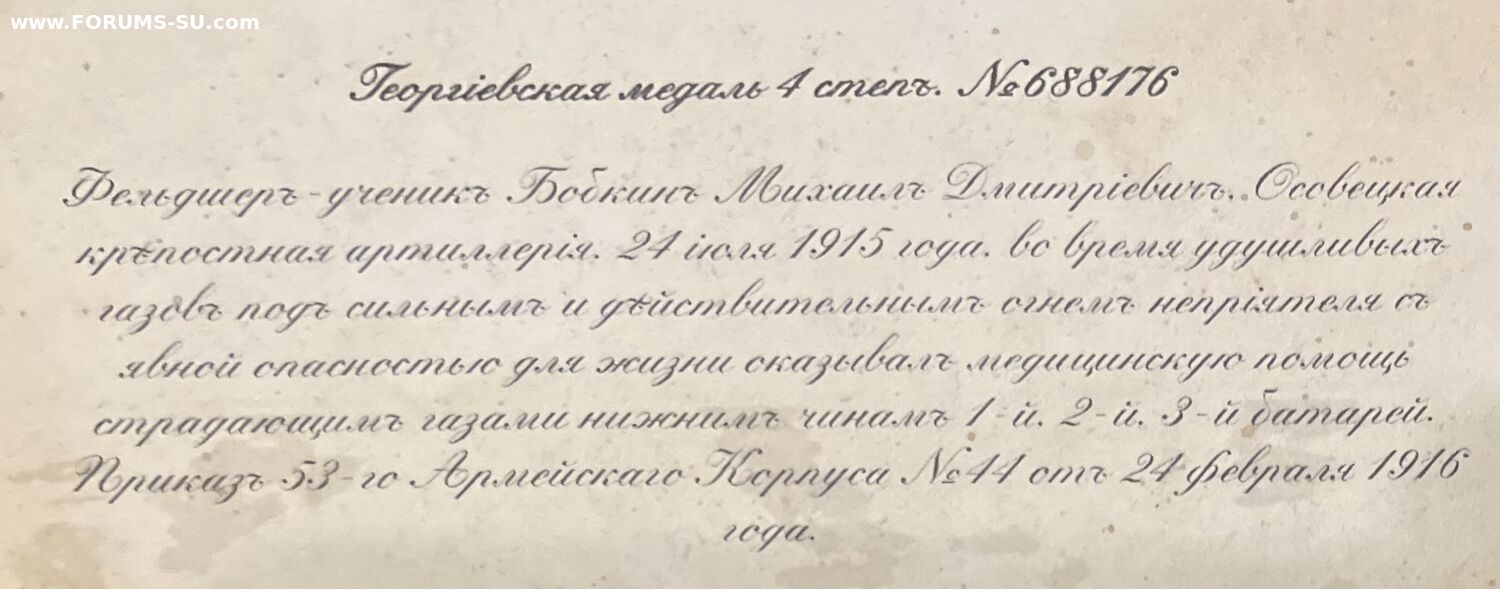 www.FORUMS-SU.com
Георгіевская медаль 4 степъ. №688176
Фельдшеръ-ученикъ Бобкинъ Михаилъ Дмитріевичъ. Осовецкая
крѣпостная артиллерія. 24 іюля 1915 года. во время удушливыхъ
газовъ подъ сильнымъ и дѣйствительнымъ огнемъ непріятеля съ
явной опасностью для жизни оказывалъ медицинскую помощь
страдающимъ газами нижнимъ чинамъ 1-й. 2-й. 3-й батарей.
Приказъ 53-го Армейскаго Корпуса №44 отъ 24 февраля 1916
года.